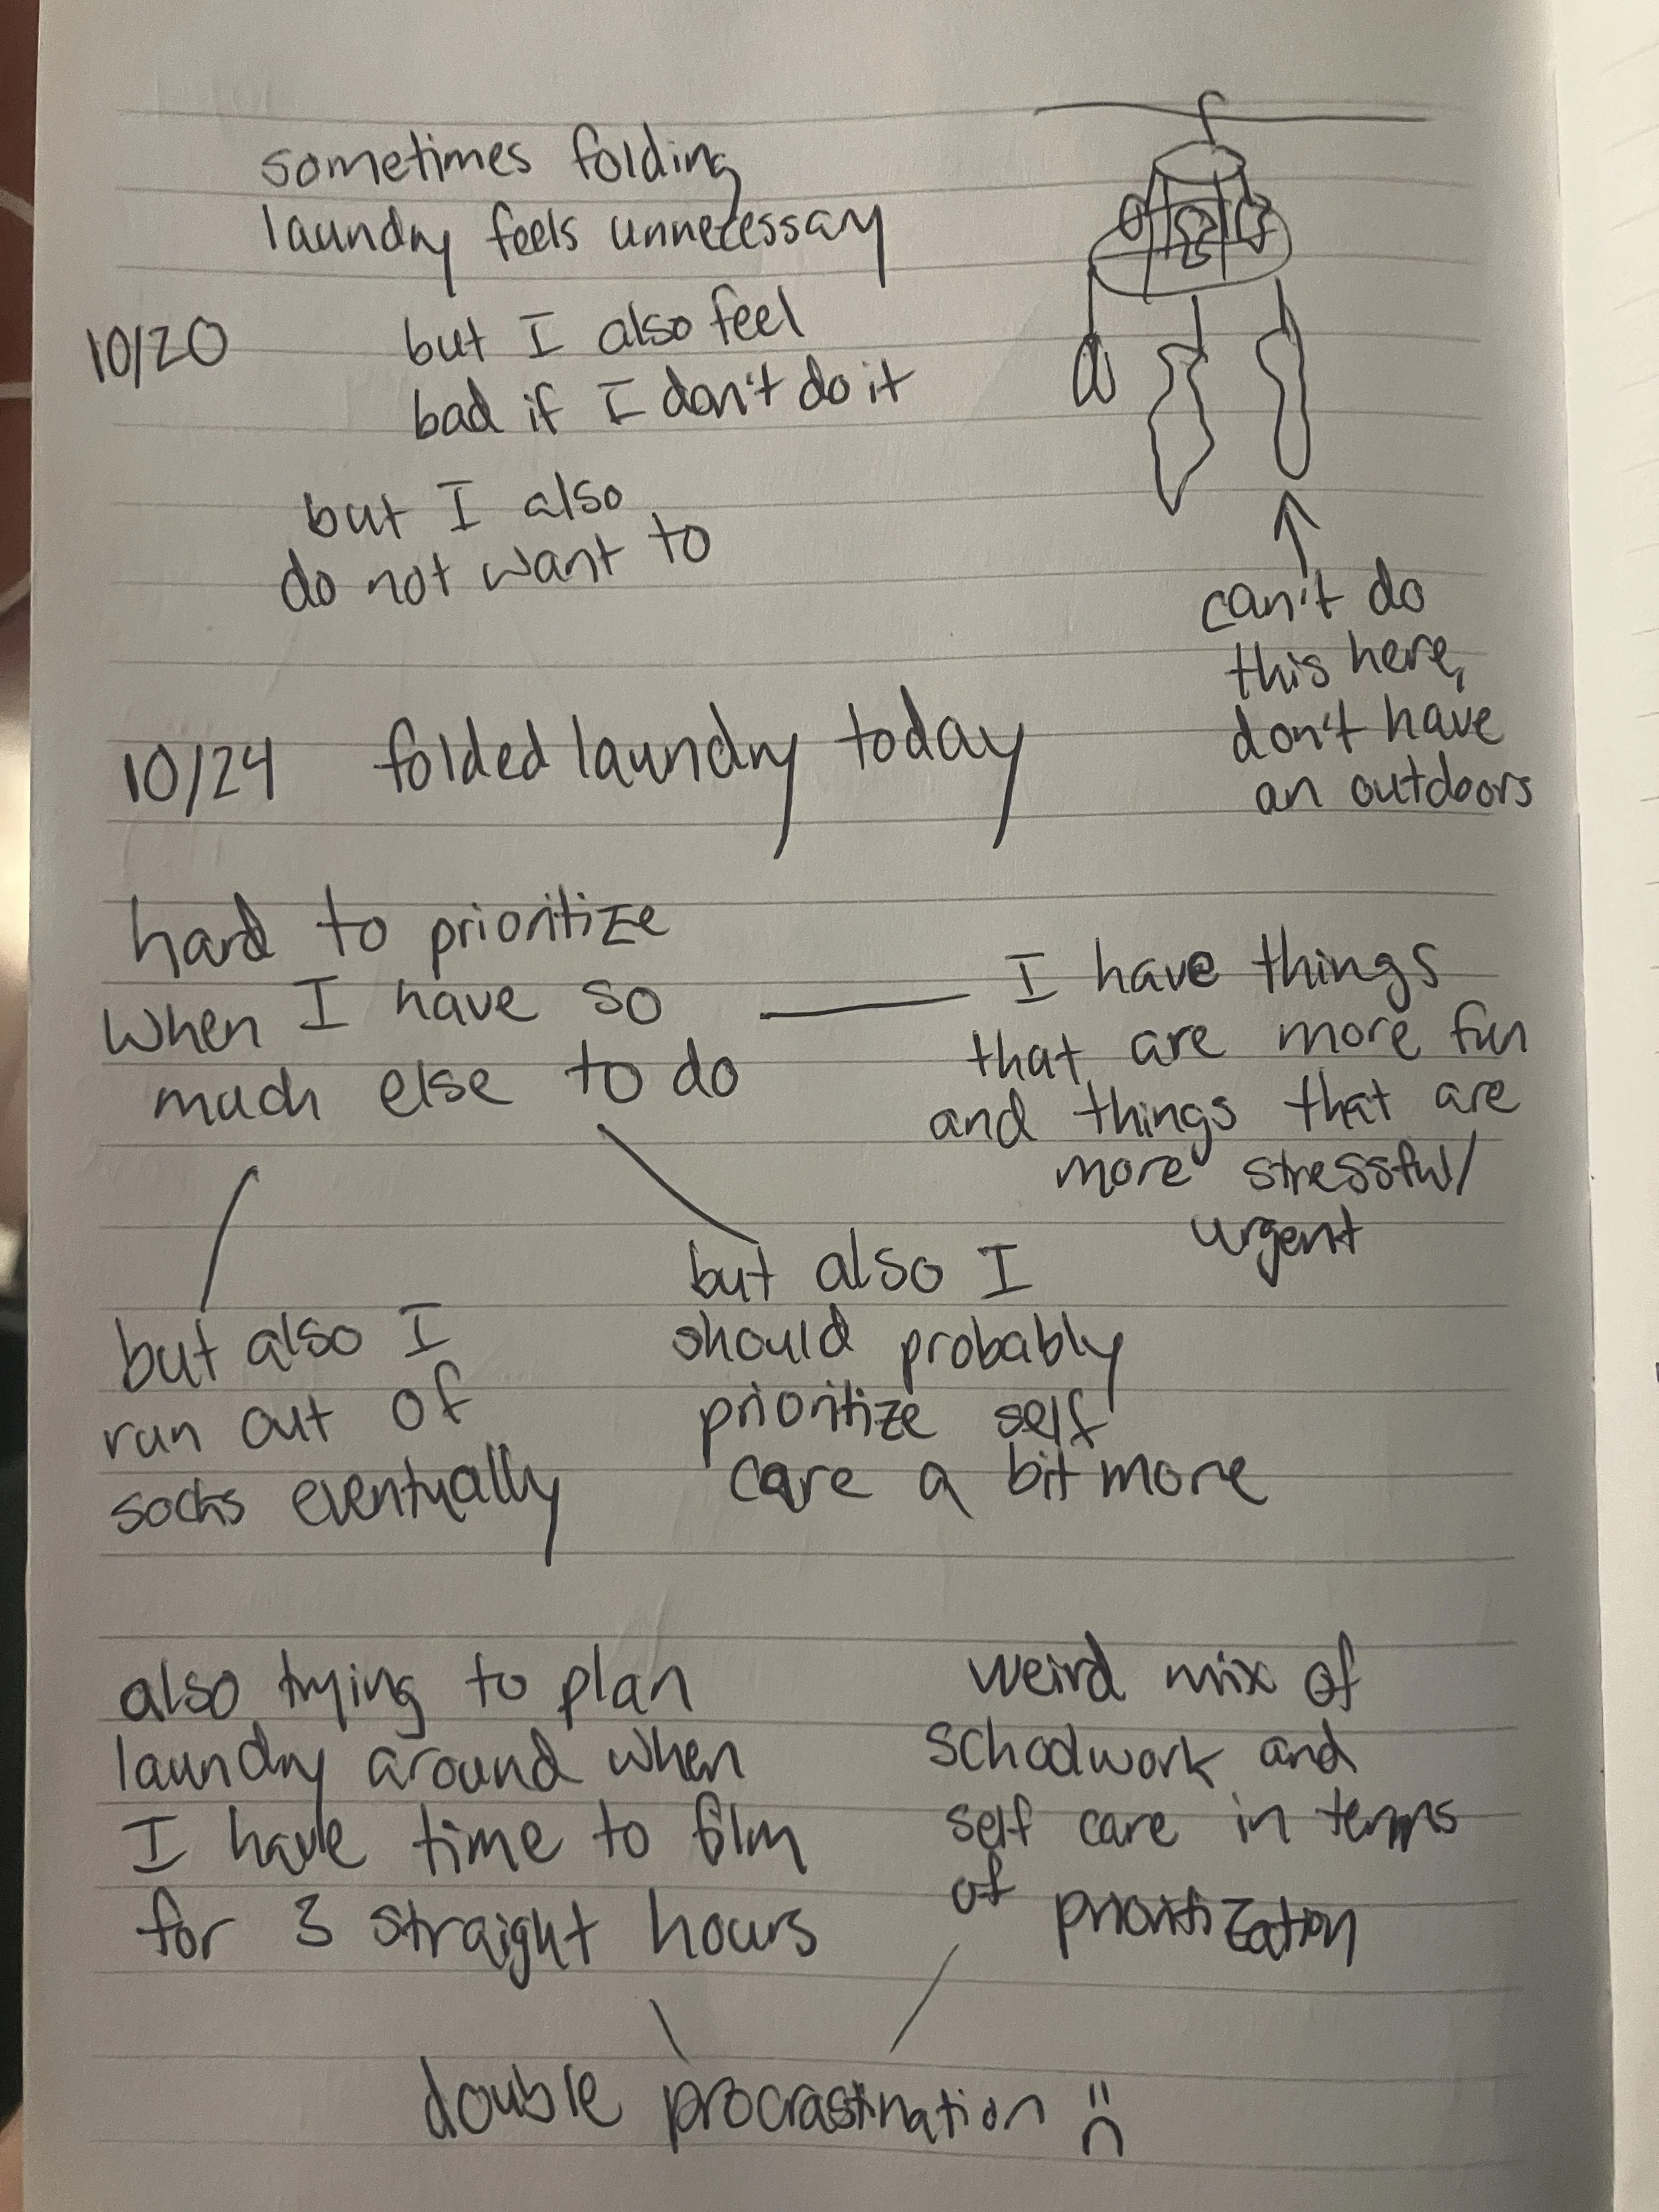 sometimes folding
laundry feels unnecessary
10/20
but I also feel
bad if I don't do it
but I also
do not want to
can't do
this here,
don't have
an outdoors
10/24 folded laundry today
hard to prioritize
when I have so
much else to do
I have things
that are more fun
and things that are
more stressful/
urgent
but also I
run out of
socks eventually
but also I
should probably
prioritize self
care a bit more
also trying to plan
laundry around when
I have time to film
for 3 straight hours
weird mix of
schoolwork and
self care in terms
of prioritization
double procrastination :(